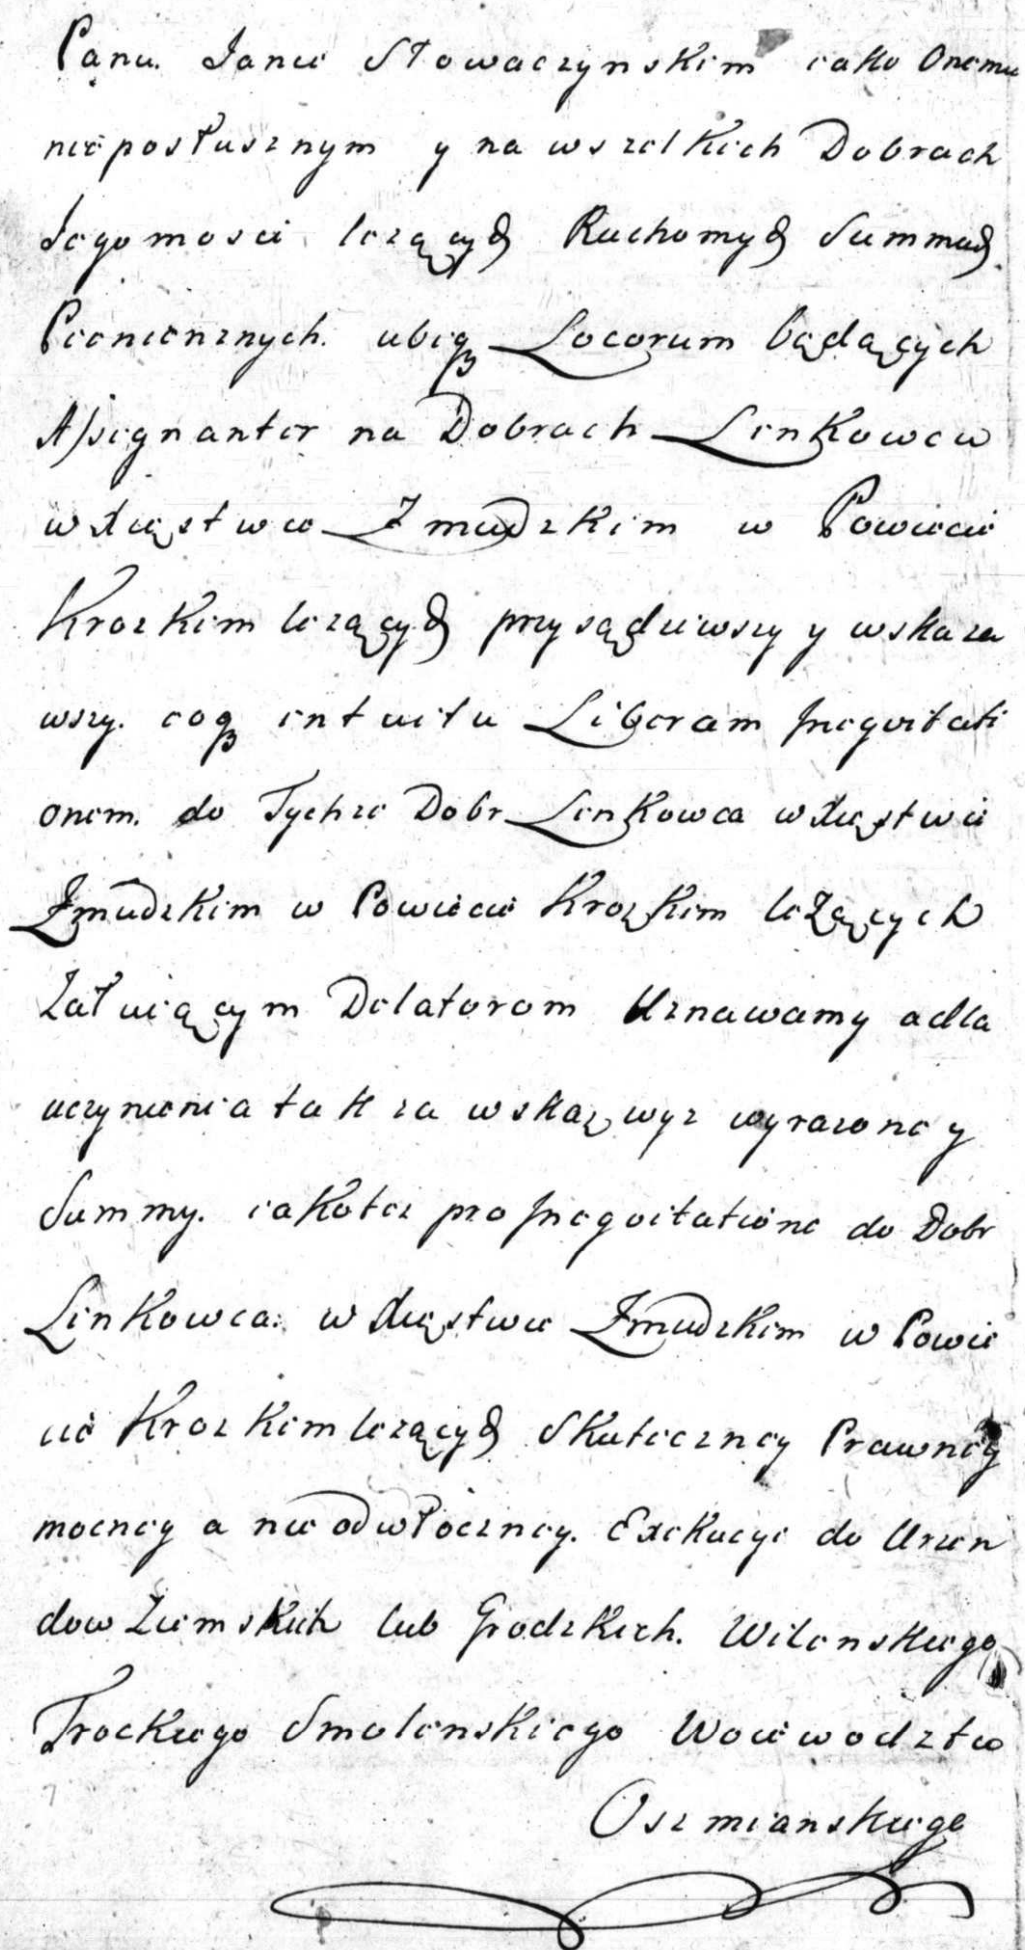 Panu. Janie Słowaczynskim iako Onemu
nieposłusznym y na wszelkich Dobrach
Jegomosci lezących Ruchomych Summach
Pienienznych. ubiq Locorum będących
Assignanter na Dobrach Linkowcu
w Xięstwie Zmudzkim w Powiecie
Krozkim lezących przysądziwszy y wskaza
wszy. eoq intuitu Liberam Ineqvitati
onem. do Tychze Dobr Linkowca w Xięstwie
Zmudzkim w Powiecie Krozkim leżących
Załuiącym Delatorom Uznawamy a dla
uczynienia tak za wskaz wyz wyrazoney
Summy. iako tez pro Ineqvitatione do Dobr
Linkowca. w Xięstwie Zmudzkim w Powie
cie Krozkim lezących Skuteczney Prawney
mocney a nieodwłoczney. Exekucyi do Urzen
dow Ziemskich lub Grodzkich. Wilenskiego
Trockiego Smolenskiego Woiewodztw
Oszmianskiego